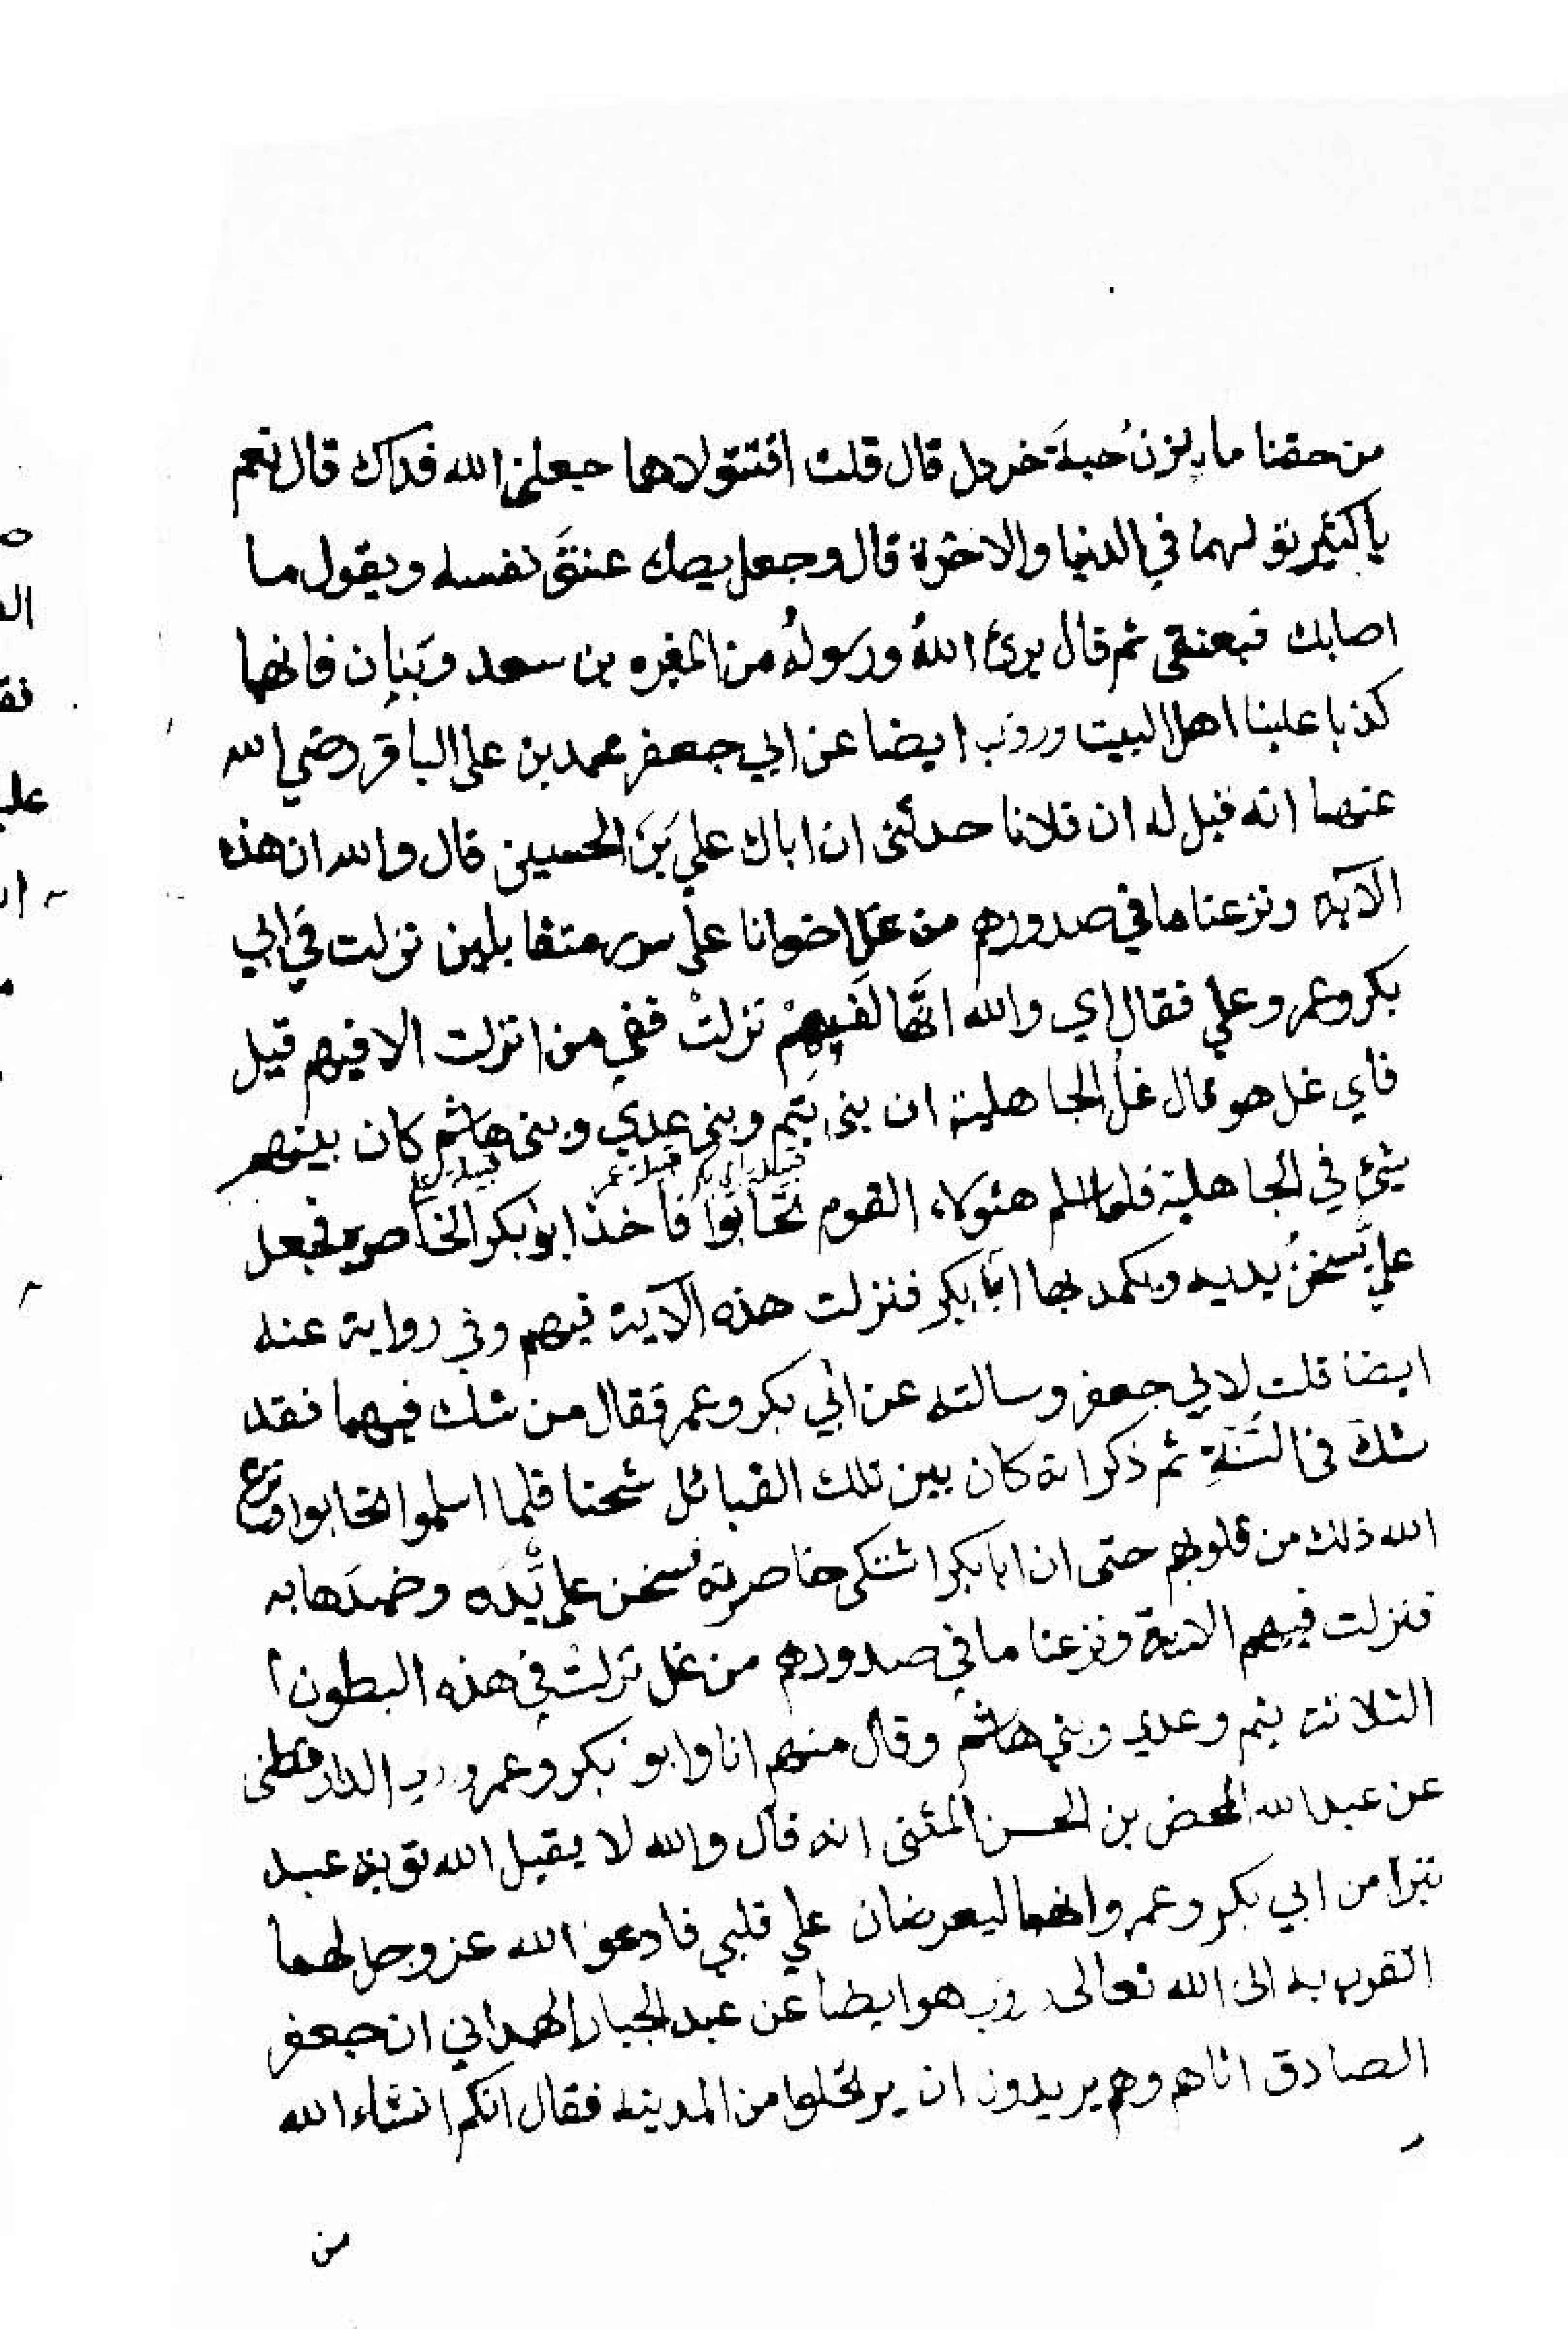 من حقنا ما يزن حبة خردل قال قلت افتتولاهما جعلني الله فداك قال نعم
يا كثير تولهما في الدنيا والاخرة قال وجعل يصك عنق نفسه ويقول ما
اصابك فبعنقي ثم قال برئ الله ورسوله من المغيره بن سعد وبنان فانهما
كذبا علينا اهل البيت وروي ايضا عن ابي جعفر محمد بن علي الباقر رضي الله
عنهما انه قيل له ان فلانا حدثني ان اباك علي بن الحسين قال والله ان هذه
الآيه ونزعنا ما في صدورهم من غل اخوانا على سرر متقابلين نزلت في ابي
بكر وعمر وعلي فقال اي والله انها لفيهم نزلت ففي من انزلت الا فيهم قيل
فاي غل هو قال غل الجاهلية ان بني تيم وبني عدي وبني هاشم كان بينهم
قبيلة ابي بكر قبيلة عمر قبيلة علي
شئ في الجاهلية فلما اسلم هئولاء القوم تحابوا فاخذ ابو بكر الخاصره فجعل
علي يسخن يديه ويكمد بها ابا بكر فنزلت هذه الآية فيهم وفي رواية عنه
ايضا قلت لابي جعفر وسالته عن ابي بكر وعمر فقال من شك فيهما فقد
شك في السنة ثم ذكر انه كان بين تلك القبائل شحنا فلما اسلموا تحابوا ونزع
الله ذلك من قلوبهم حتى ان ابا بكر اشتكى خاصرته فسخن علي يده وضمدها به
فنزلت فيهم الاية ونزعنا ما في صدورهم من غل نزلت في هذه البطون
الثلاثة تيم وعدي وبني هاشم وقال منهم انا وابو بكر وعمر وروي الدارقطني
عن عبد الله المحض بن الحسن المثنى انه قال والله لا يقبل الله توبة عبد
تبرا من ابي بكر وعمر وانهما ليعرضان علي قلبي فادعو الله عز وجل لهما
اتقرب به الى الله تعالى وروي هو ايضا عن عبد الجبار الهمداني ان جعفر
الصادق اتاهم وهم يريدون ان يرتحلوا من المدينه فقال انكم انشاء الله
من